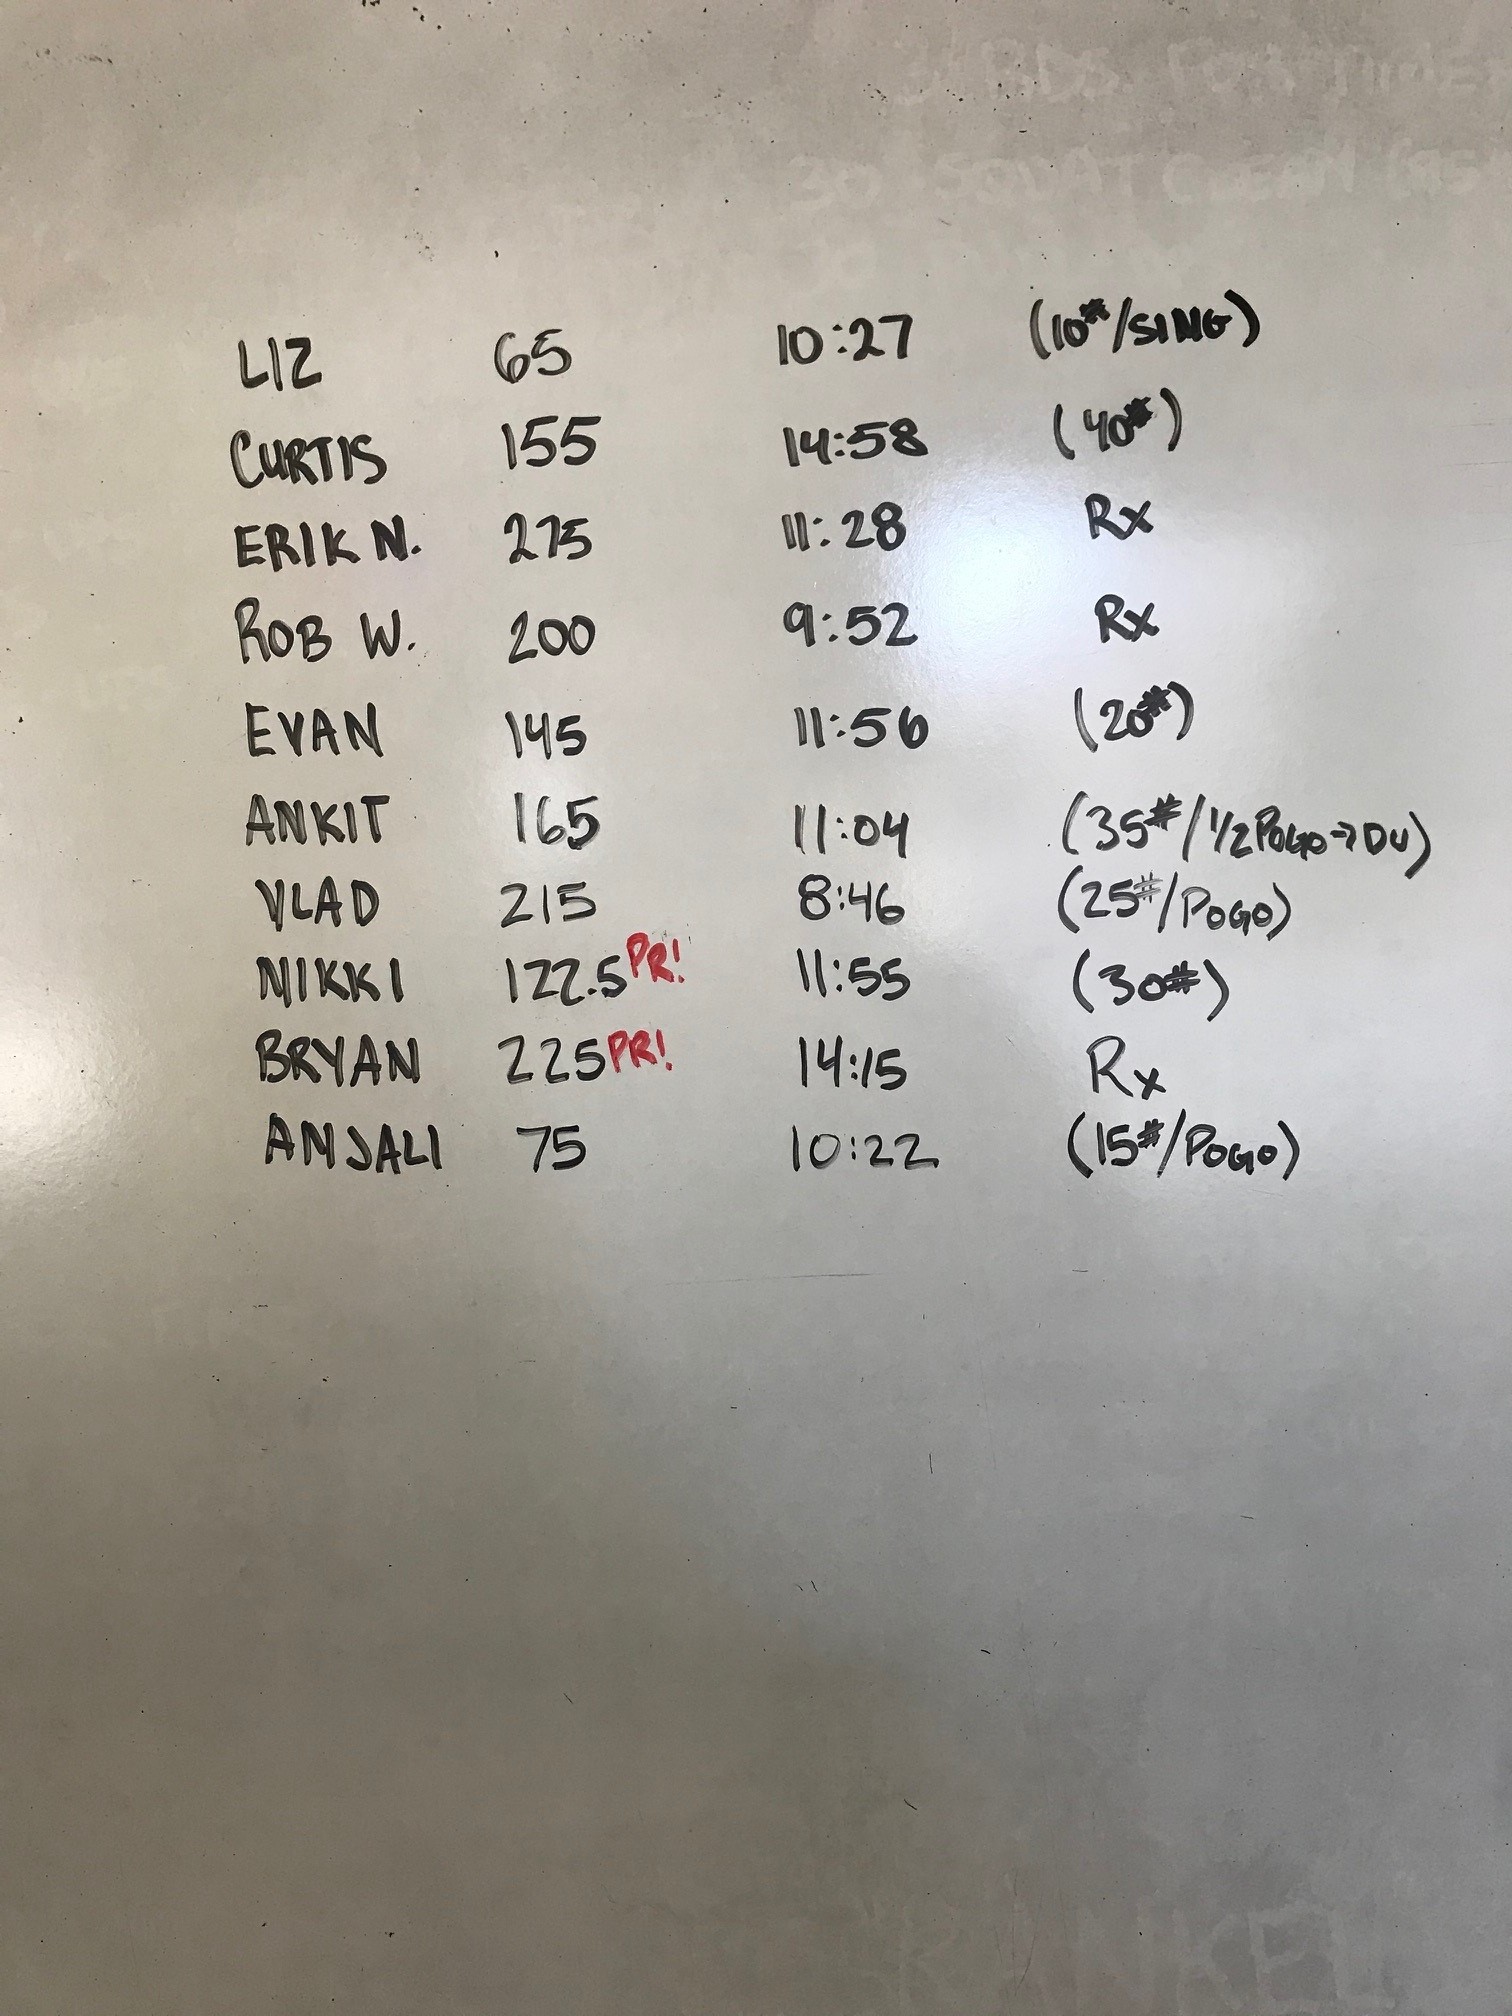 3 RDS. FOR TIME
30 SQUAT CLEAN
LIZ 65 10:27 (10#/SING)
CURTIS 155 14:58 (40#)
ERIK N. 275 11:28 Rx
ROB W. 200 9:52 Rx
EVAN 145 11:56 (20#)
ANKIT 165 11:04 (35#/1/2 POGO→DU)
VLAD 215 8:46 (25#/POGO)
NIKKI 122.5 PR! 11:55 (30#)
BRYAN 225 PR! 14:15 Rx
ANJALI 75 10:22 (15#/POGO)